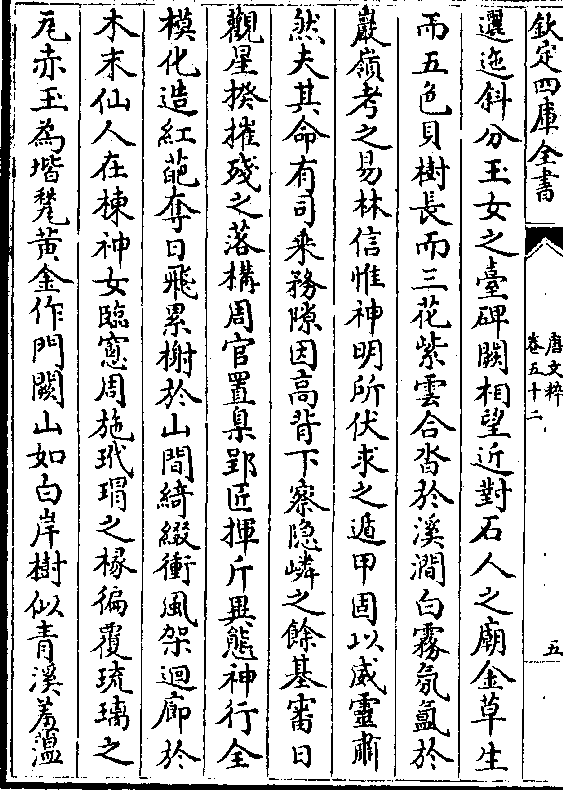 欽定四庫全書
唐文粹
卷五十二
五
邐迤斜分玉女之臺碑闕相望近對石人之廟金草生
而五色貝樹長而三花紫雲合沓於溪澗白霧氛氳於
巖嶺考之易林信惟神明所伏求之遁甲固以威靈肅
然夫其命有司乘務隙因高背下察隐嶙之餘基審日
觀星揆摧殘之落構周官置臬郢匠揮斤異態神行全
模化造紅葩奪日飛累榭於山間綺綴衝風架迴廊於
木末仙人在棟神女臨窻周施玳瑁之椽徧覆琉璃之
瓦赤玉為堦甃黄金作門闕山如白岸樹似青溪羞薀